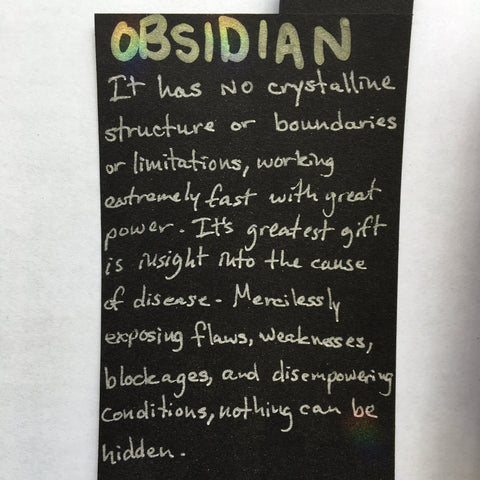 OBSIDIAN
It has NO crystalline
structure or boundaries
or limitations, working
extremely fast with great
power. It's greatest gift
is insight into the cause
of disease. Mercilessly
exposing flaws, weaknesses,
blockages, and disempowering
conditions, nothing can be
hidden.